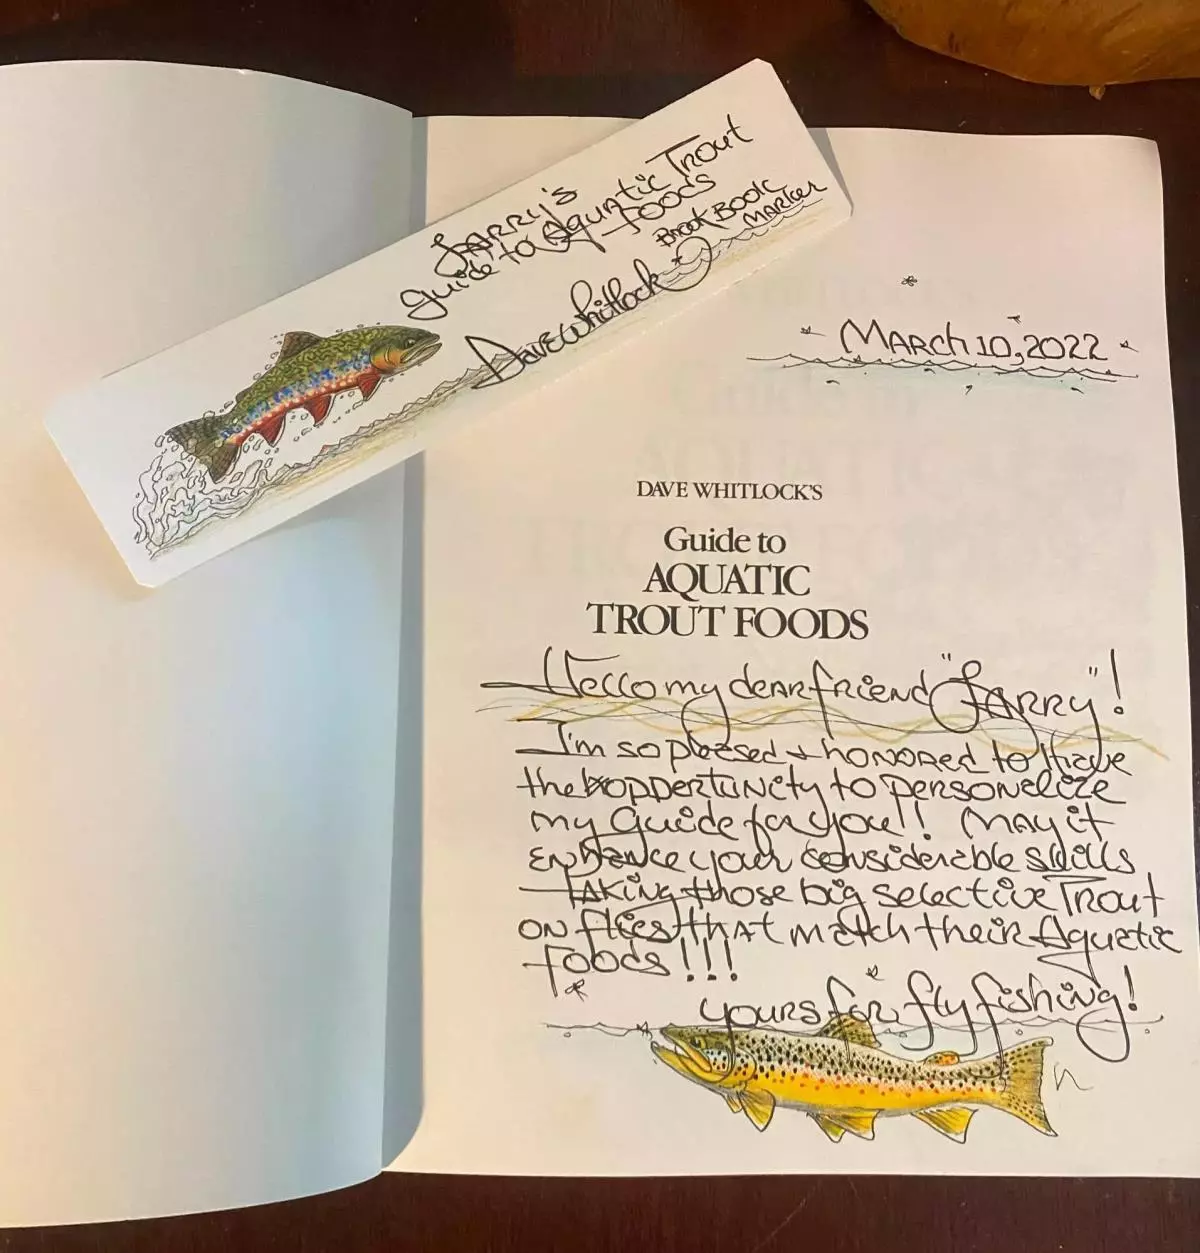 Larry's
Guide to Aquatic Trout
Foods
Brook Book
Marker
Dave Whitlock
March 10, 2022
DAVE WHITLOCK'S
Guide to
AQUATIC
TROUT FOODS
Hello my dear friend "Larry"!
I'm so pleased & honored to Have
the oppertunity to personalize
my Guide for you!! May it
Enhance your considerable skills
Taking those big selective Trout
on flies that match their Aquatic
Foods!!!
yours for fly fishing!